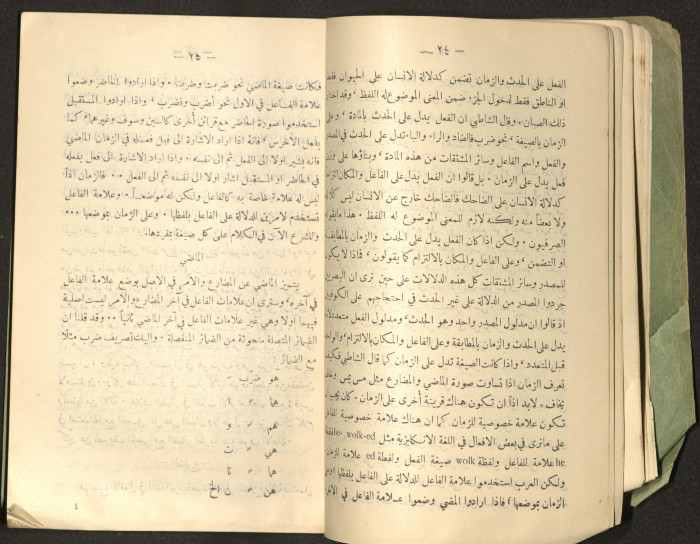 — ٢٤ —
الفعل على الحدث والزمان تضمن كدلالة الانسان على الحيوان فقط
او الناطق فقط لدخول الجزء ضمن المعنى الموضوع له اللفظ ، وقد اختار
ذلك الصبان. وقال الشاطبي ان الفعل يدل على الحدث بالمادة ، وعلى
الزمان بالصيغة ، نحو ضرب فالضاد والراء والباء تدل على الحدث في المصدر
والفعل واسم الفاعل وسائر المشتقات من هذه المادة ، وبناؤها على وزن
فعل يدل على الزمان. بل قالوا ان الفعل يدل على الفاعل والمكان التزاما
كدلالة الانسان على الضاحك فالضاحك خارج عن الانسان ليس كلا له
ولا بعضا منه ولكنه لازم للمعنى الموضوع له اللفظ. هذا ما يقوله
الصرفيون. ولكن اذا كان الفعل يدل على الحدث والزمان بالمطابقة
او التضمن ، وعلى الفاعل والمكان بالالتزام كما يقولون ، فلماذا لا يكون
للمصدر وسائر المشتقات كل هذه الدلالات على حين نرى ان البصريين
جردوا المصدر من الدلالة على غير الحدث في احتجاجهم على الكوفيين
اذ قالوا ان مدلول المصدر واحد وهو الحدث، ومدلول الفعل متعدد لانه
يدل على الحدث والزمان بالمطابقة وعلى الفاعل والمكان بالالتزام، والواحد
قبل المتعدد ، واذا كانت الصيغة تدل على الزمان كما قال الشاطبي فكيف
تعرف الزمان اذا تساوت صورة الماضي والمضارع مثل مس يمس وخاف
يخاف ، لابد اذاً ان تكون هناك قرينة أخرى على الزمان. كان يجب ان
تكون علامة خصوصية للزمان كما ان هناك علامة خصوصية للفاعل
على ما نرى في بعض الافعال في اللغة الانكليزية مثل he- wolk-ed
he علامة للفاعل ولفظة wolk صيغة الفعل ولفظة ed علامة للزمان
ولكن العرب استخدموا علامة الفاعل للدلالة على الفاعل بلفظها وعلى
الزمان بموضعها ، فاذا ارادوا المضي وضعوا علامة الفاعل في الآخر
— ٢٥ —
فكانت صيغة الماضي نحو ضربت وضربنا. واذا ارادوا الحاضر وضعوا
علامة الفاعل في الاول نحو أضرب ونضرب ، واذا ارادوا المستقبل
استخدموا صورة الحاضر مع قرائن أخرى كالسين وسوف وغيرهما ، كما
يفعل الاخرس ، فانه اذا اراد الاشارة الى فعل فعله في الزمان الماضي
فانه يشير اولا الى الفعل ثم الى نفسه. واذا اراد الاشارة الى فعل يفعله
في الحاضر او المستقبل اشار اولا الى نفسه ثم الى الفعل... فالزمان اذاً
ليس له علامة خاصة به كالفاعل ولكن له موضعاً. وعلامة الفاعل
تستخدم لامرين للدلالة على الفاعل بلفظها. وعلى الزمان بموضعها...
ولنشرع الآن في الكلام على كل صيغة بمفردها.
الماضي
يتميز الماضي عن المضارع والامر في الاصل بوضع علامة الفاعل
في آخره ، وسترى ان علامات الفاعل في آخر المضارع والامر ليست اصلية
فيهما أولا وهي غير علامات الفاعل في آخر الماضي ثانياً.. وقد قلنا ان
الضمائر المتصلة منحوتة من الضمائر المنفصلة. واليك تصريف ضرب مثلا
مع الضمائر
هو ضرب
هما " ا
هم " وا
هي " ت
هما " تا
هن " ن الخ
٤